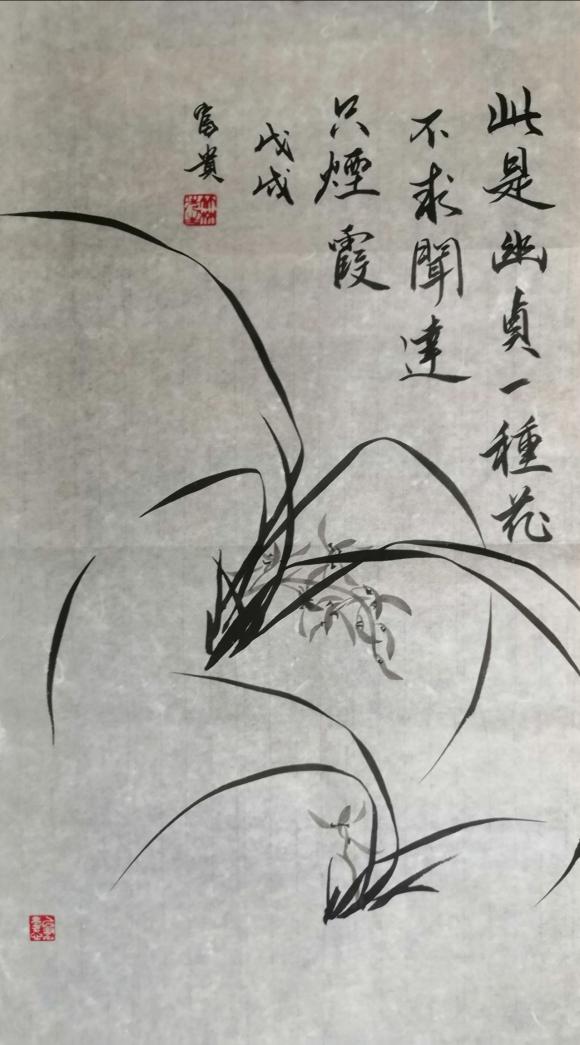 此是幽貞一種花
不求聞達
只煙霞
戊戌
富貴